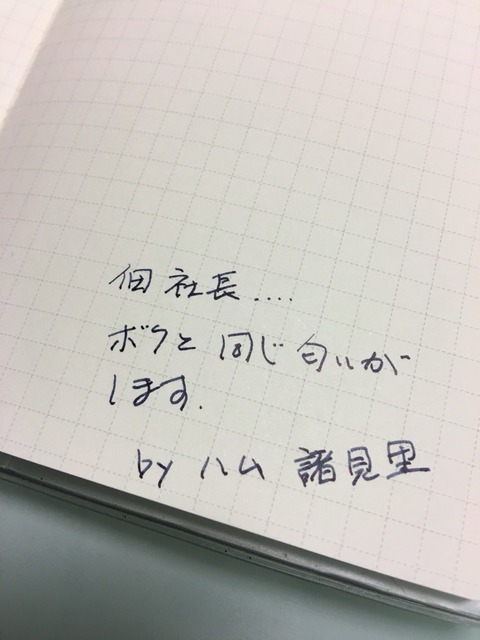 佃社長....
ボクと同じ匂いが
します.
by ハム 諸見里